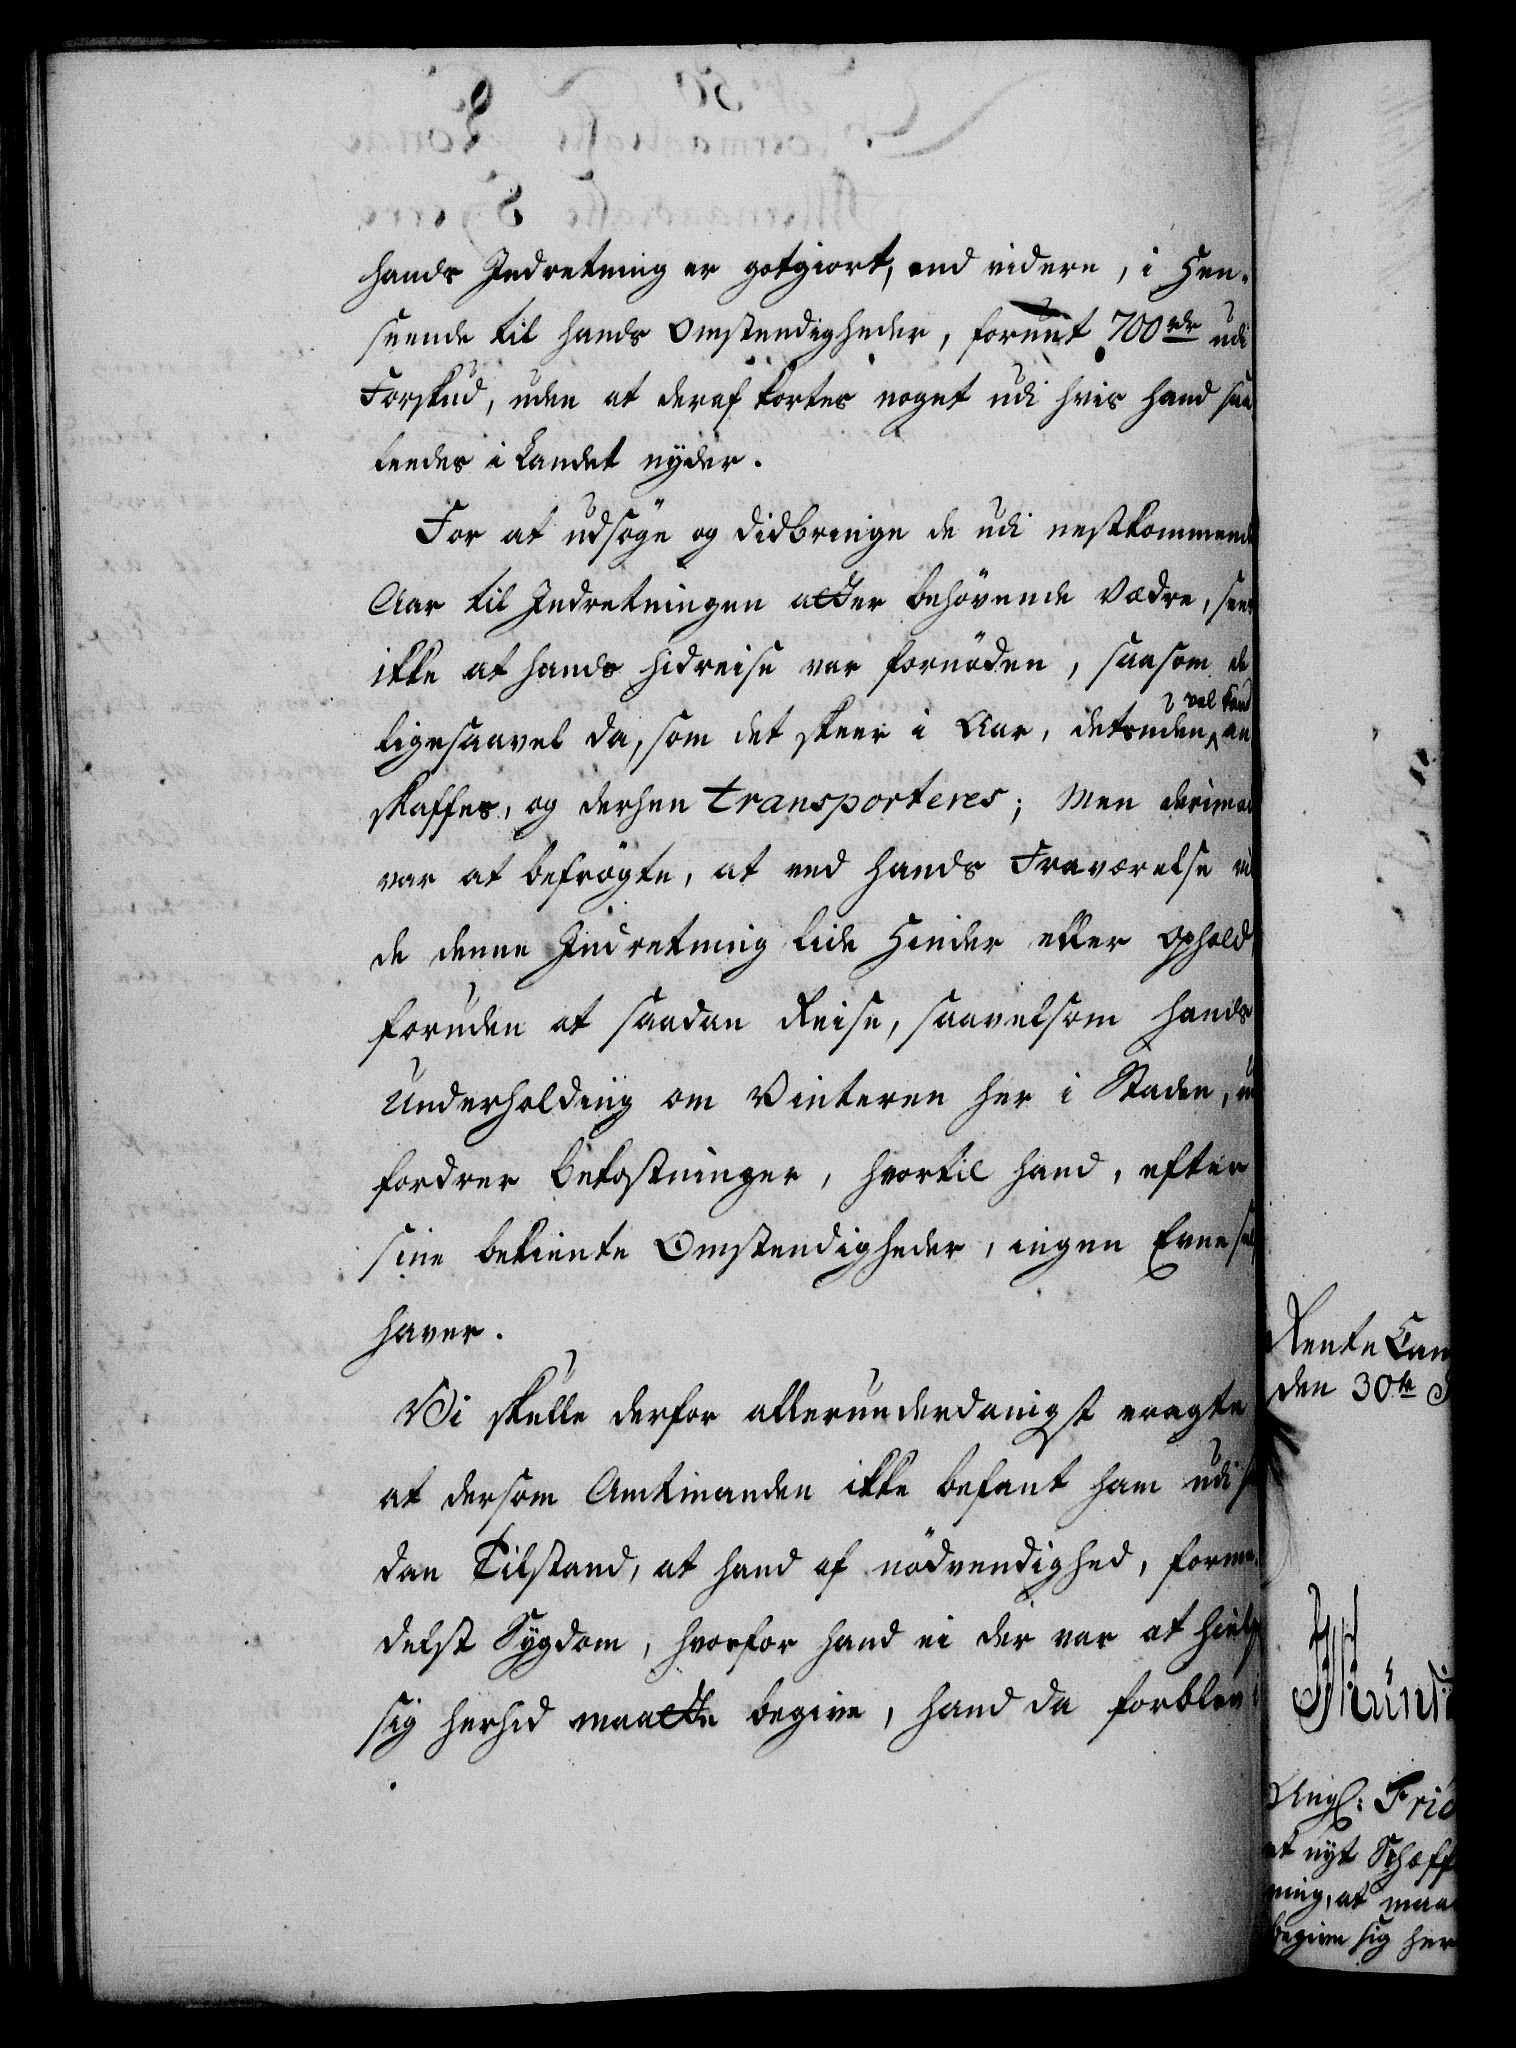 hands Indretning er gotgiort, end videre, i Hen-
seende til hands Omstendigheder, forunt 700 rdr udi
Forskud, uden at deraf kortes noget udi hvis hand saa
ledes i Landet nyder.
For at udsöge og didbringe de udi nestkommende
Aar til Indretningen atter behövende Vædre, seer
ikke at hands hidreise var fornöden, saasom de
ligesaavel da, som det skeer i Aar, desuden vel kand an
skaffes, og derhen transporteres; Men derimod
var at befrögte, at ved hands Fraværelse vil
de denne Indretning lide Hinder eller Ophold,
foruden at saadan Reise, saavelsom hands
Underholding om Vinteren her i Staden, ud
fordrer Bekostninger, hvortil hand, efter
sine bekiente Omstendigheder, ingen Evne selv
haver.
Vi skulle derfor allerunderdanigst eragte
at dersom Amtmanden ikke befant ham udi saa
dan Tilstand, at hand af nödvendighed, forme-
delst Sygdom, hvorfor hand ei der var at hielpe
sig herhid maatte begive, hand da forblev i
Rente Cam
den 30te
Ang: Frid
et nyt Schæff
ning, at maa
begive sig her